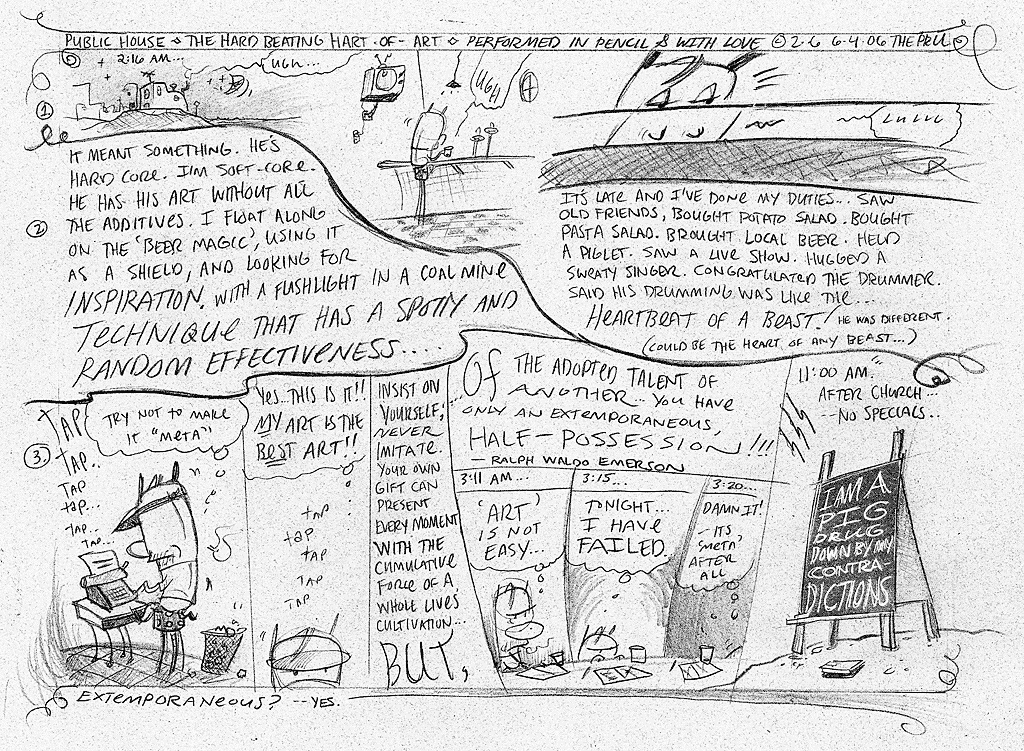 PUBLIC HOUSE ⋄ THE HARD BEATING HART-OF-ART ⋄ PERFORMED IN PENCIL & WITH LOVE © 2.6 6.4.06 THE PBU
2:16 AM...
UGH...
UGH
1
IT MEANT SOMETHING. HE'S
HARD CORE. I'M SOFT-CORE.
HE HAS HIS ART WITHOUT ALL
THE ADDITIVES. I FLOAT ALONG
2
ON THE 'BEER MAGIC', USING IT
AS A SHIELD, AND LOOKING FOR
INSPIRATION. WITH A FLASHLIGHT IN A COAL MINE
TECHNIQUE THAT HAS A SPOTTY AND
RANDOM EFFECTIVENESS....
ITS LATE AND I'VE DONE MY DUTIES... SAW
OLD FRIENDS, BOUGHT POTATO SALAD. BOUGHT
PASTA SALAD. BROUGHT LOCAL BEER. HELD
A PIGLET. SAW A LIVE SHOW. HUGGED A
SWEATY SINGER. CONGRATULATED THE DRUMMER.
SAID HIS DRUMMING WAS LIKE THE...
HEARTBEAT OF A BEAST! HE WAS DIFFERENT.
(COULD BE THE HEART OF ANY BEAST...)
3.
TAP
TAP..
TAP..
TAP
TAP..
TAP..
TAP..
TRY NOT TO MAKE
IT "META"!
YES..THIS IS IT!!
MY ART IS THE
BEST ART!!
TAP
TAP
TAP
TAP
TAP
INSIST ON
YOURSELF;
NEVER
IMITATE.
YOUR OWN
GIFT CAN
PRESENT
EVERY MOMENT
WITH THE
CUMULATIVE
FORCE OF A
WHOLE LIVES'
CULTIVATION...
BUT,
OF THE ADOPTED TALENT OF
ANOTHER... YOU HAVE
ONLY AN EXTEMPORANEOUS,
HALF-POSSESSION!!!
— RALPH WALDO EMERSON
3:11 AM...
'ART'
IS NOT
EASY...
3:15...
TONIGHT...
I HAVE
FAILED.
3:20...
DAMN IT!
- ITS
'META'
AFTER
ALL
11:00 AM.
AFTER CHURCH...
--NO SPECIALS..
I AM A
PIG
DRUG
DOWN BY MY
CONTRA-
DICTIONS
EXTEMPORANEOUS? --YES.